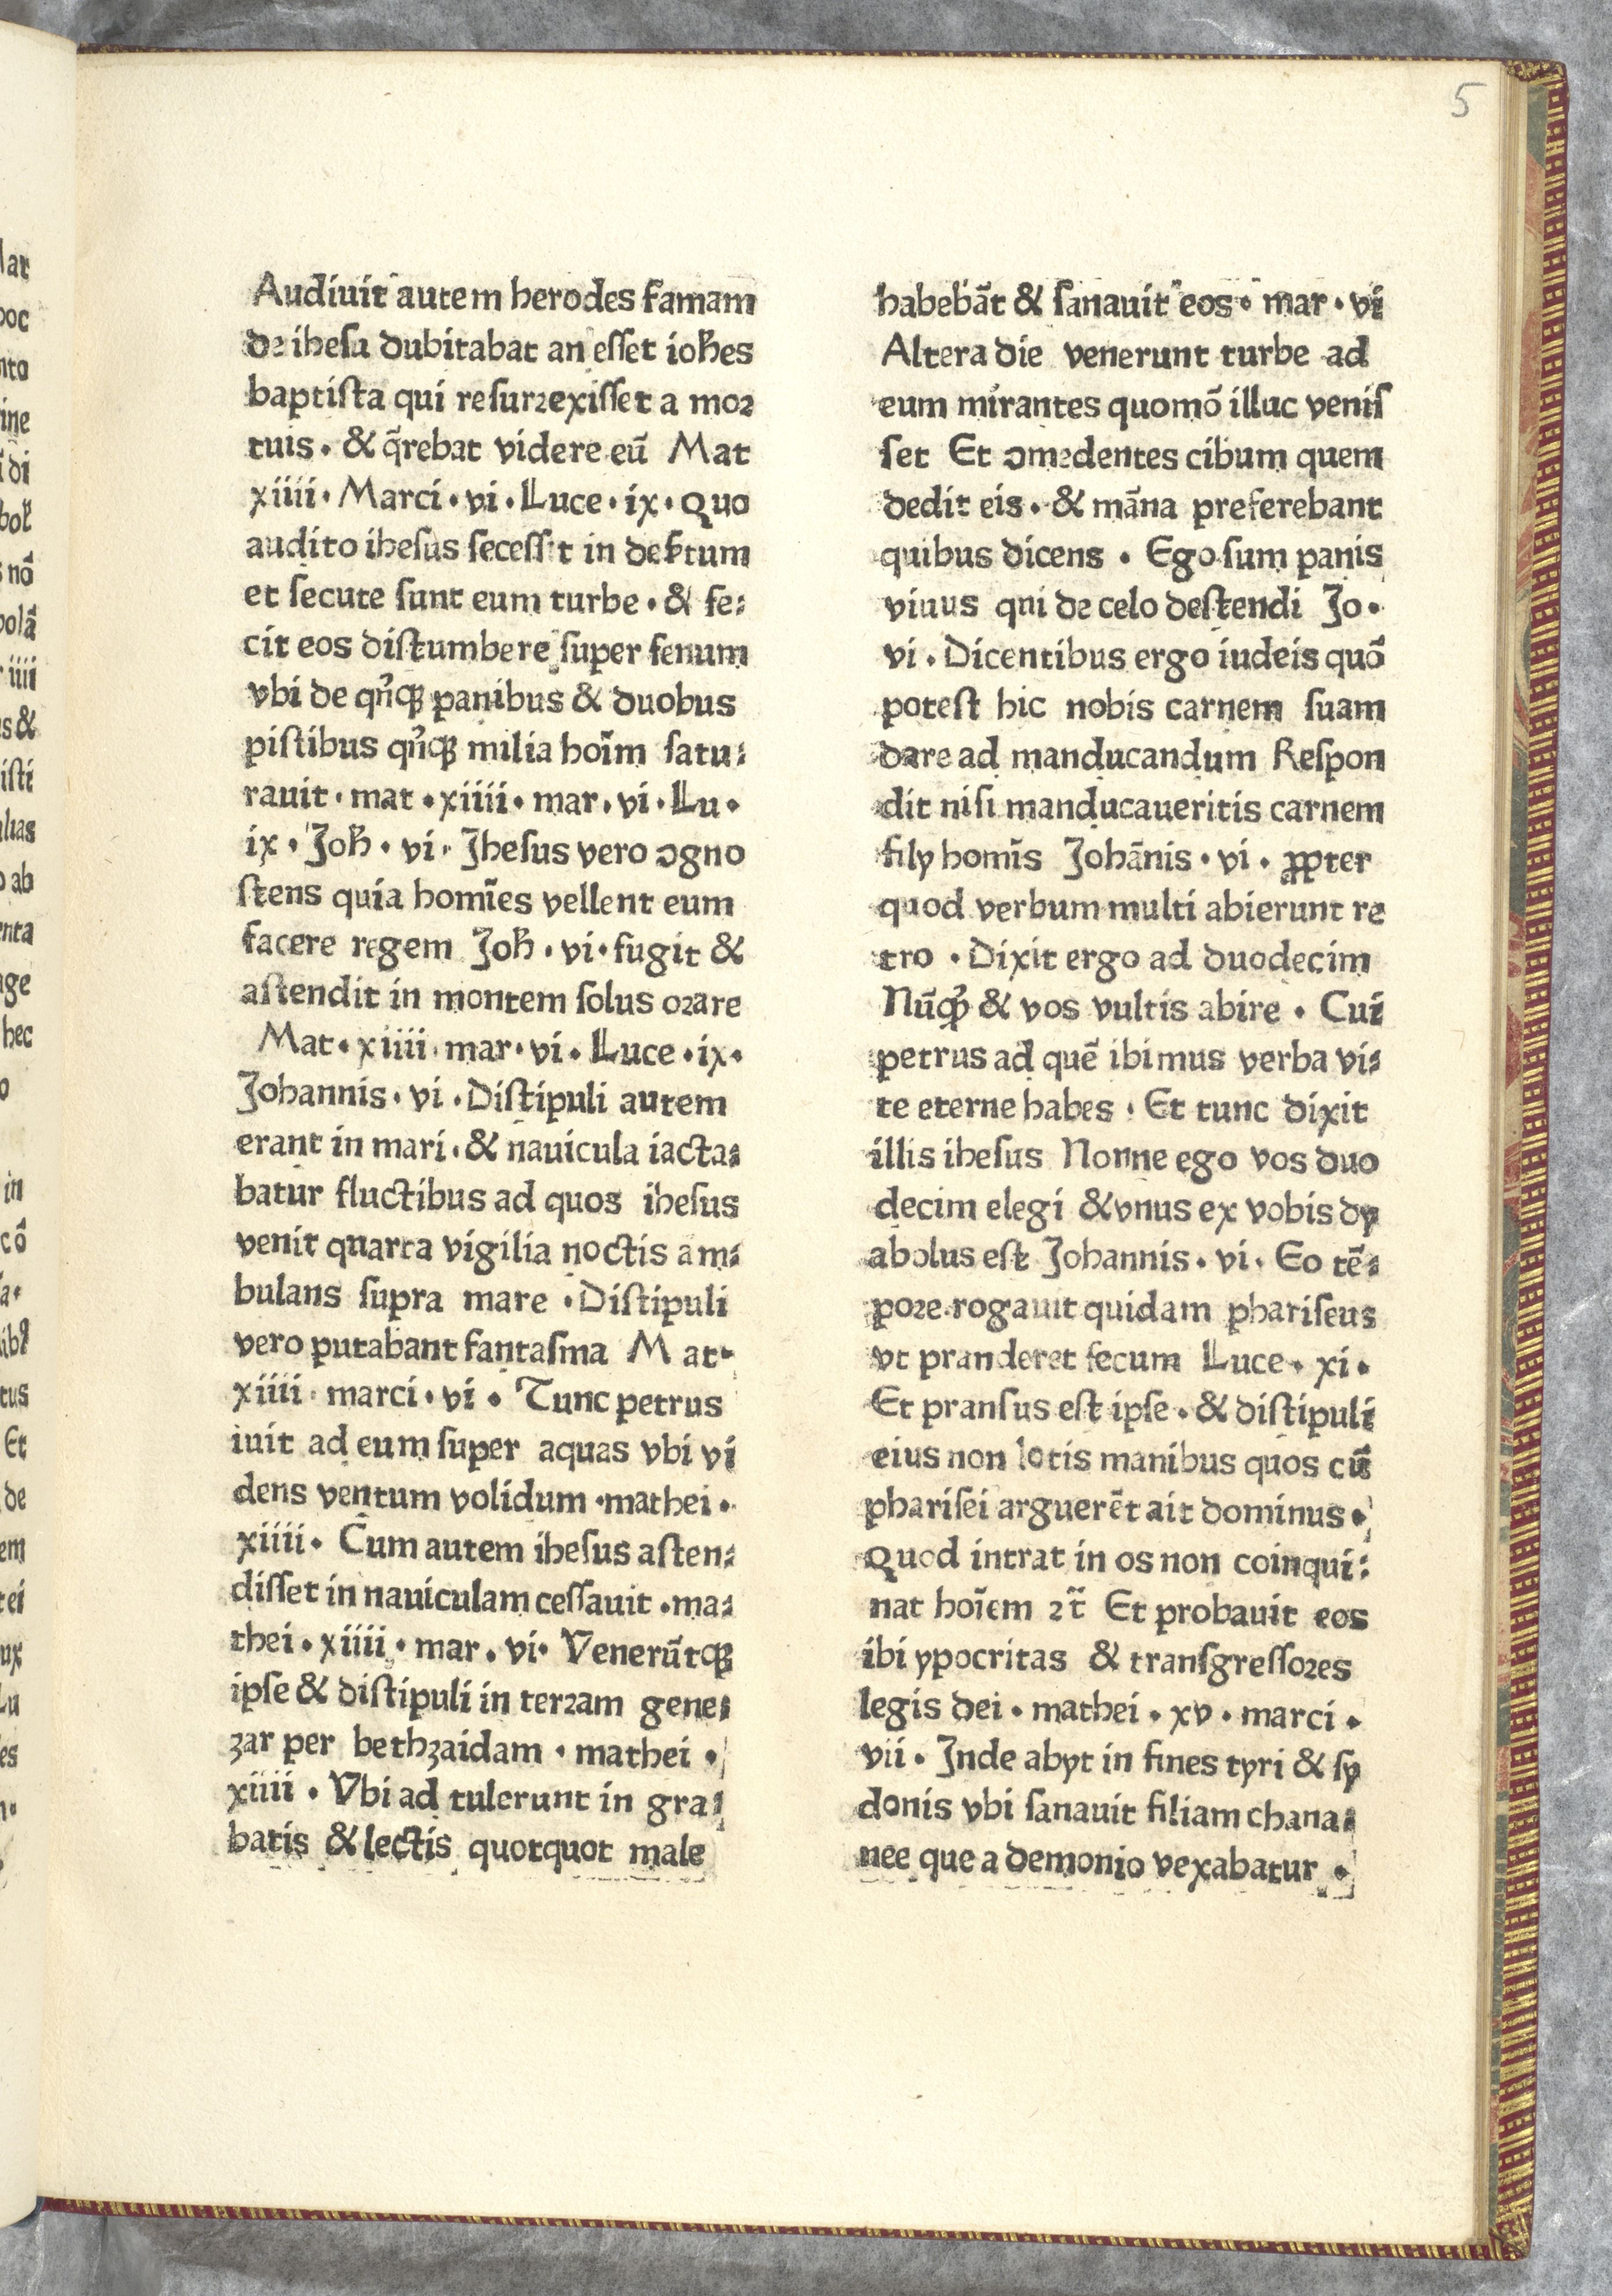 5
Audiuit autem herodes famam
de ihesu dubitabat an esset ioħes
baptista qui resurꝛexisset a moꝛ
tuis · & q̄rebat videre eū Mat
xiiii · Marci · vi · Luce · ix · Quo
audito ihesus secessit in def̄tum
et secute sunt eum turbe · & fe⸗
cit eos distumbere super fenum
vbi de qn̄qꝫ panibus & duobus
pistibus qn̄qꝫ milia hoīm satu⸗
rauit · mat · xiiii · mar · vi · Lu ·
ix · Joħ · vi · Jhesus vero ꝯgno
stens quia homīes vellent eum
facere regem Joħ · vi · fugit &
astendit in montem solus oꝛare
Mat · xiiii · mar · vi · Luce · ix ·
Johannis · vi · Distipuli autem
erant in mari · & nauicula iacta⸗
batur fluctibus ad quos ihesus
venit quarta vigilia noctis am⸗
bulans supra mare · Distipuli
vero putabant fantasma Mat ·
xiiii · marci · vi · Tunc petrus
iuit ad eum super aquas vbi vi
dens ventum volidum · mathei ·
xiiii · Cum autem ihesus asten⸗
disset in nauiculam cessauit · ma⸗
thei · xiiii · mar · vi · Venerūtqꝫ
ipse & distipuli in terꝛam gene⸗
zar per bethzaidam · mathei ·
xiiii · Vbi ad tulerunt in gra⸗
batis & lectis quotquot male
habebāt & sanauit eos · mar · vi
Altera die venerunt turbe ad
eum mirantes quomō illuc venis
set Et ꝯmedentes cibum quem
dedit eis · & māna preferebant
quibus dicens · Ego sum panis
viuus qni de celo destendi Jo ·
vi · Dicentibus ergo iudeis quō
potest hic nobis carnem suam
dare ad manducandum Respon
dit nisi manducaueritis carnem
fily homīs Johānis · vi · ꝓpter
quod verbum multi abierunt re
tro · Dixit ergo ad duodecim
Nūqꝫ & vos vultis abire · Cui
petrus ad quē ibimus verba vi⸗
te eterne habes · Et tunc dixit
illis ihesus Nonne ego vos duo
decim elegi & vnus ex vobis dy
abolus est Johannis · vi · Eo tē⸗
poꝛe rogauit quidam phariseus
vt pranderet secum Luce · xi ·
Et pransus est ipse · & distipuli
eius non lotis manibus quos cū
pharisei arguerēt ait dominus ·
Quod intrat in os non coinqui⸗
nat hoīem ꝛt̄ Et probauit eos
ibi ypocritas & transgressoꝛes
legis dei · mathei · xv · marci ·
vii · Inde abyt in fines tyri & sy
donis vbi sanauit filiam chana⸗
nee que a demonio vexabatur ·